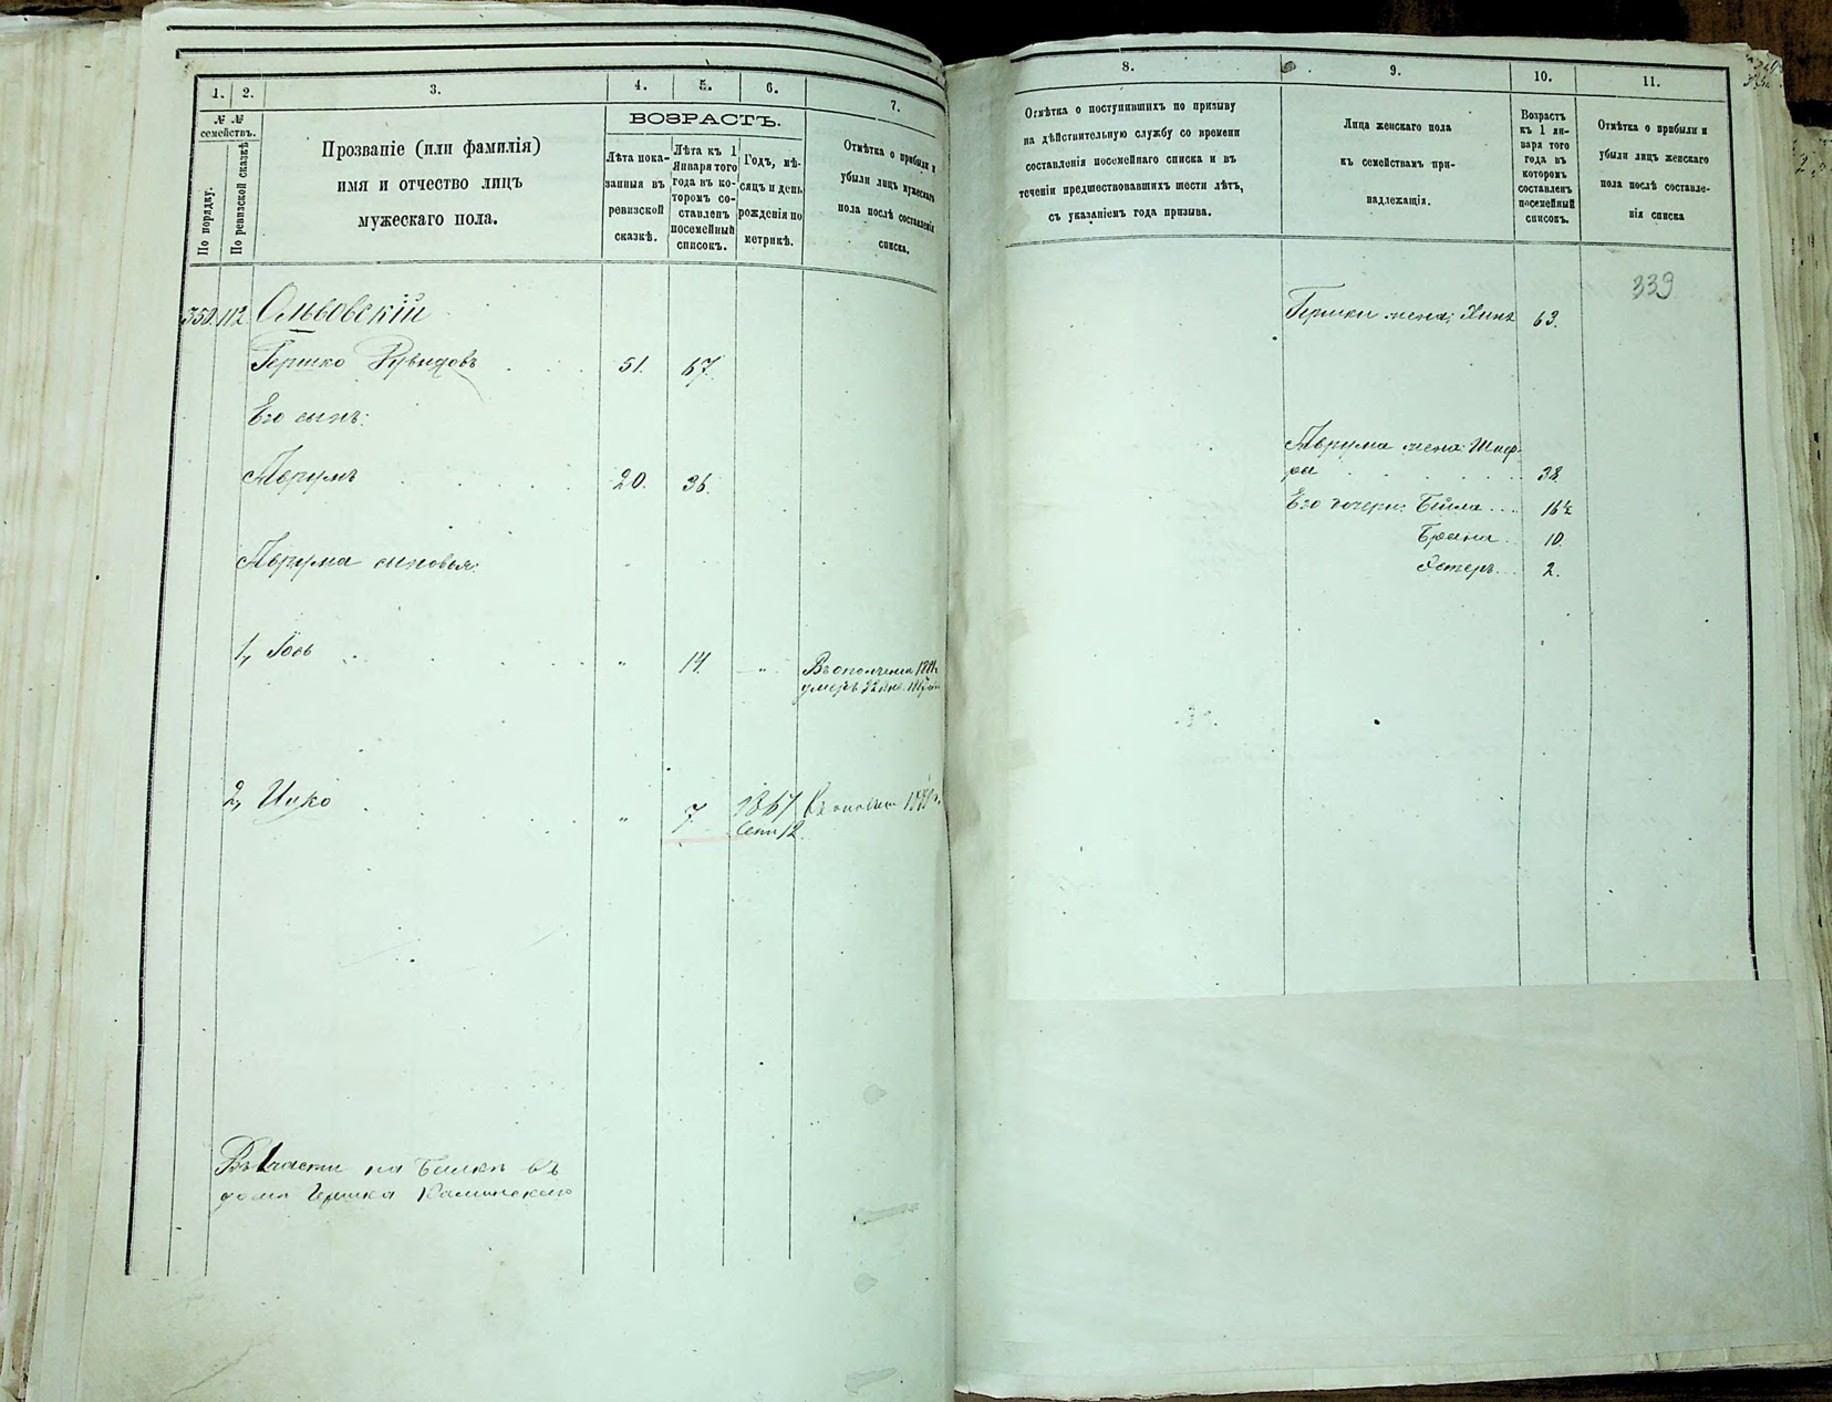 1. 2. 3. 4. 5. 6. 7.
№ № семействъ.
По порядку.
По ревизской сказкѣ
Прозваніе (или фамилія)
имя и отчество лицъ
мужескаго пола.
ВОЗРАСТЪ.
Лѣта пока-
занныя въ
ревизской
сказкѣ.
Лѣта къ 1
Января того
года въ ко-
торомъ со-
ставленъ
посемейный
списокъ.
Годъ, мѣ-
сяцъ и день
рожденія по
метрикѣ.
Отмѣтка о прибыли и
убыли лицъ мужескаго
пола послѣ составленія
списка.
350. 112
Гершко 51. 67.
Его сынъ:
Аврумъ 20. 36.
Аврума сыновья:
1, Іось „ 14. „
2, Ицко „ 7. 1867
Сент 12
въ
дома Гершка Каминскаго
8. 9. 10. 11.
Отмѣтка о поступившихъ по призыву
на дѣйствительную службу со времени
составленія посемейнаго списка и въ
теченіи предшествовавшихъ шести лѣтъ,
съ указаніемъ года призыва.
Лица женскаго пола
къ семействамъ при-
надлежащія.
Возрастъ
къ 1 ян-
варя того
года въ
которомъ
составленъ
посемейный
списокъ.
Отмѣтка о прибыли и
убыли лицъ женскаго
пола послѣ составле-
нія списка
339
Гершки жена: 63.
Аврума жена: Шиф-
ры 38.
Его дочери: Бейла 16½
10.
Эстеръ 2.